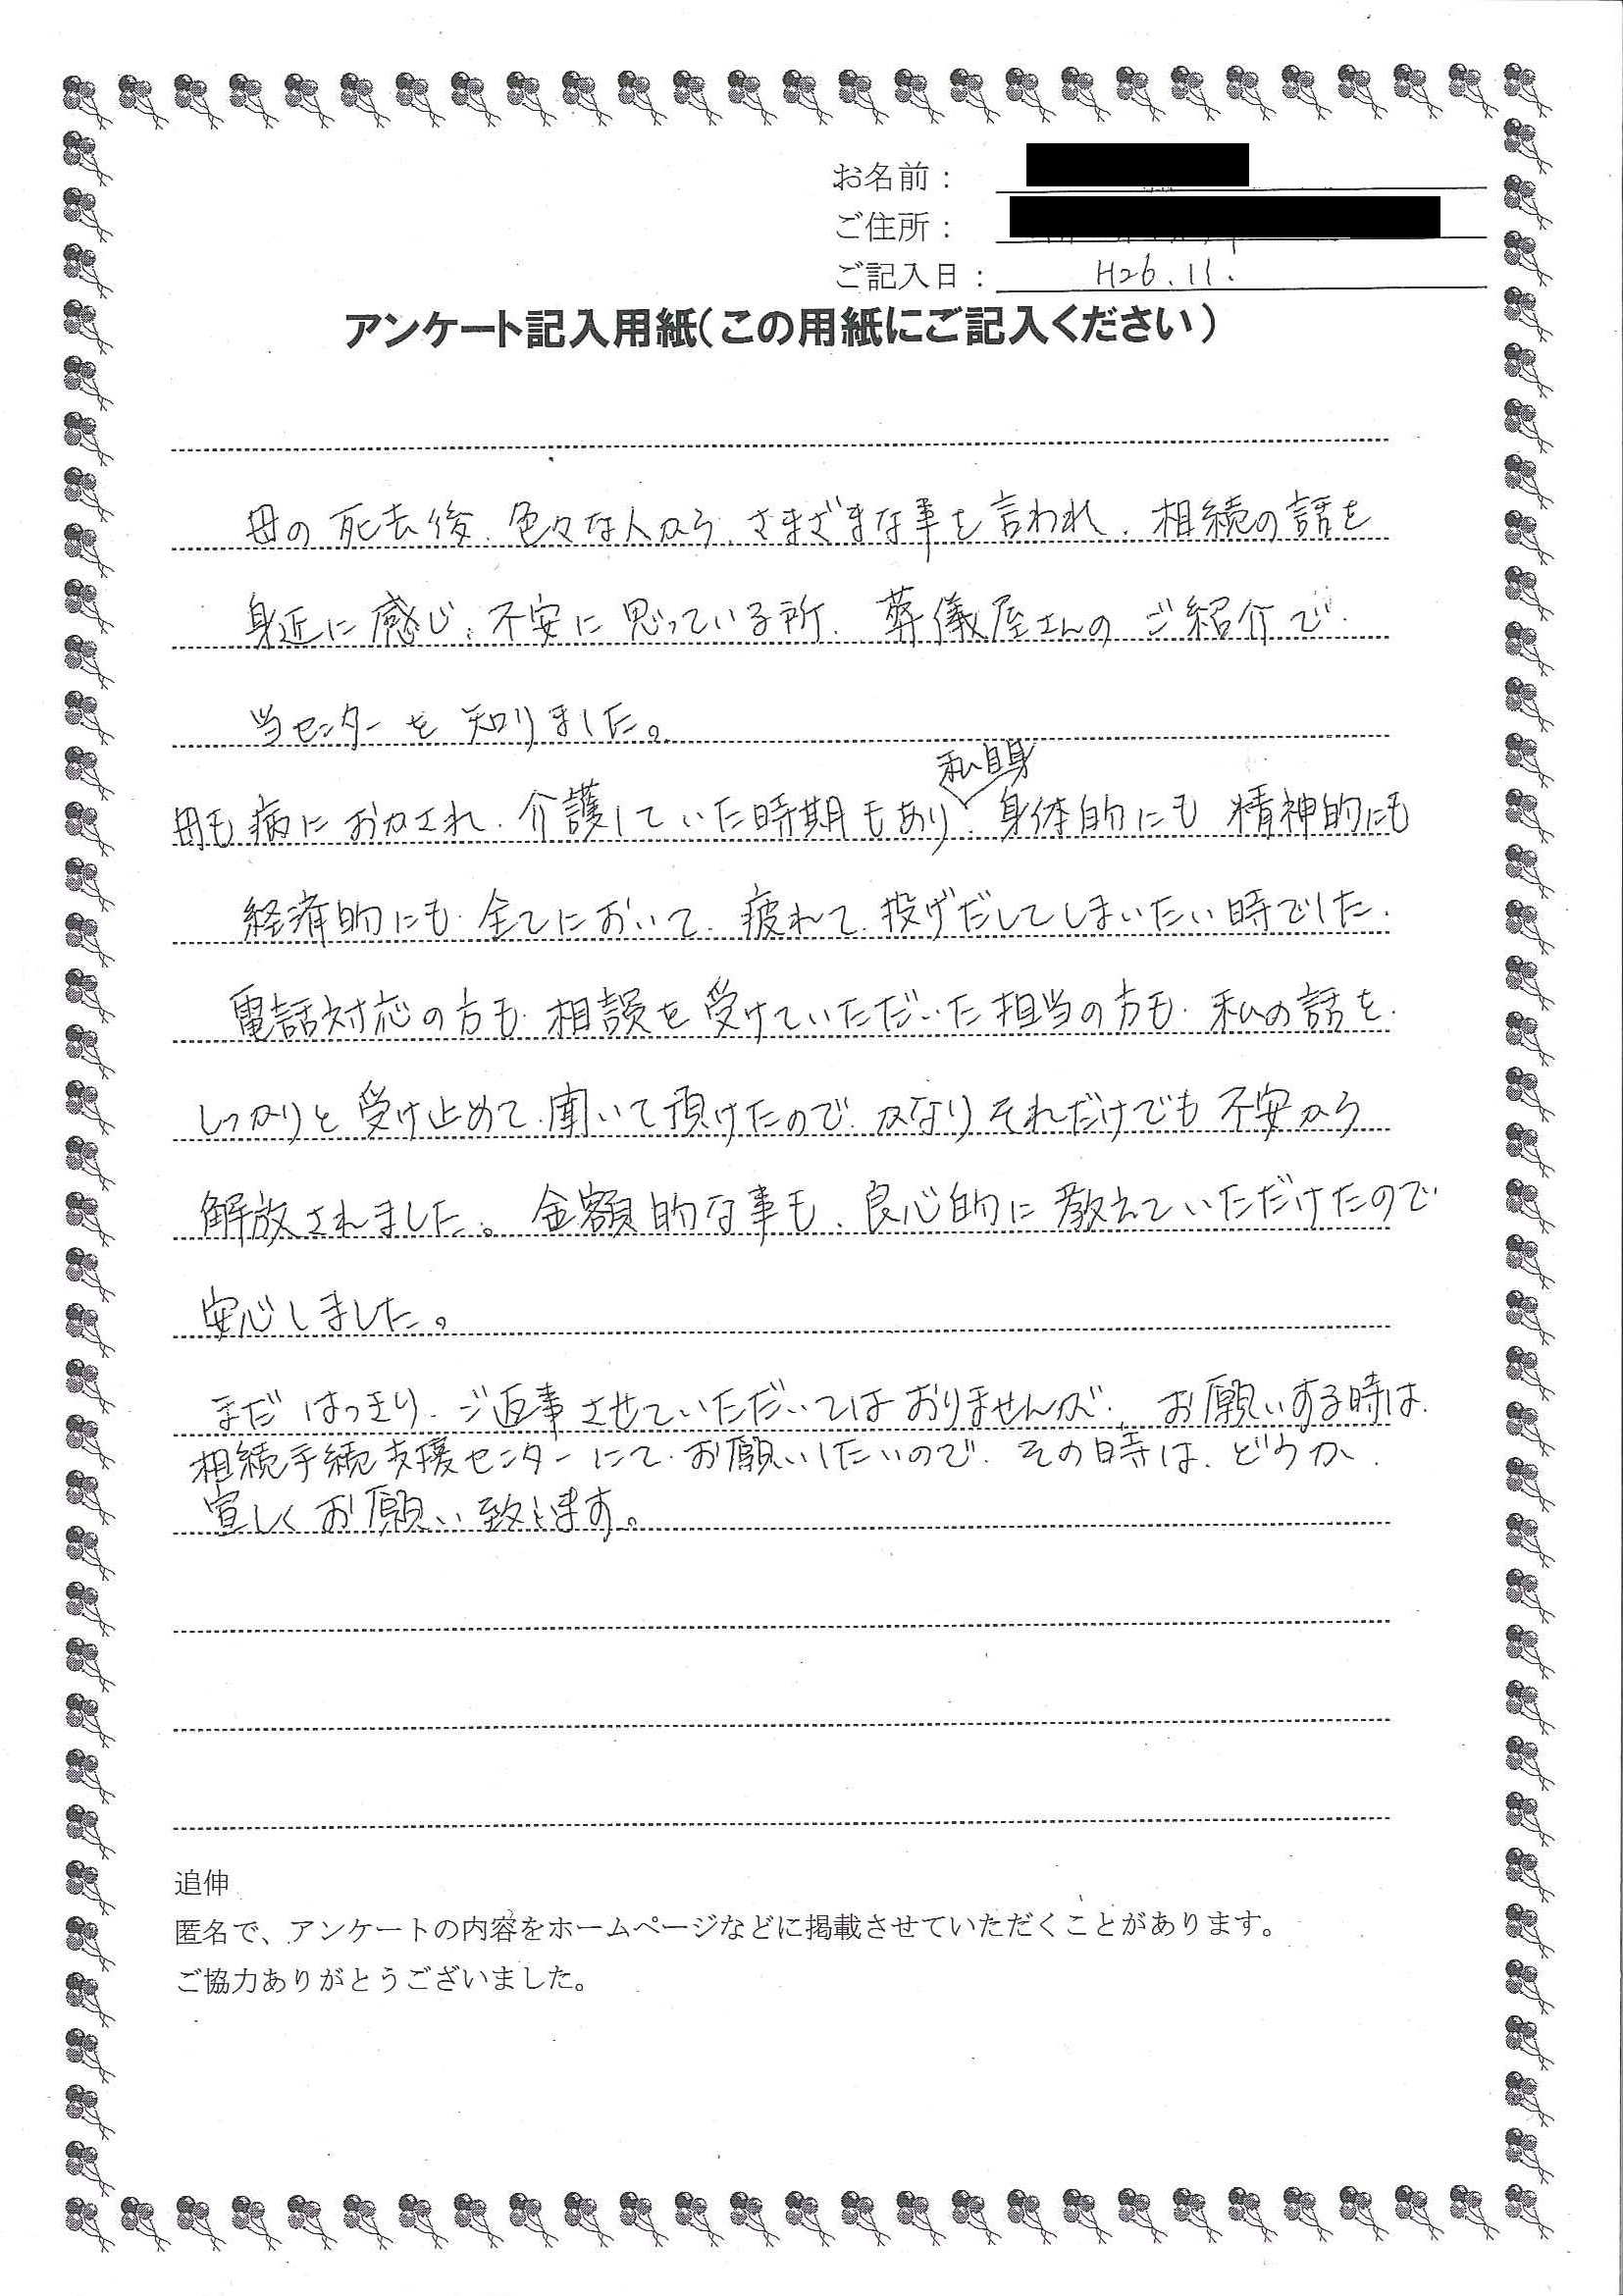 お名前：
ご住所：
ご記入日：H26.11.
アンケート記入用紙（この用紙にご記入ください）
母の死去後、色々な人から、さまざまな事を言われ、相続の話を
身近に感じ、不安に思っている所、葬儀屋さんのご紹介で、
当センターを知りました。
私自身
母も病におかされ、介護していた時期もあり、身体的にも精神的にも
経済的にも、全てにおいて、疲れて、投げだしてしまいたい時でした。
電話対応の方も、相談を受けていただいた担当の方も、私の話を、
しっかりと受け止めて、聞いて頂けたので、かなりそれだけでも不安から
解放されました。金額的な事も、良心的に教えていただけたので、
安心しました。
まだはっきり、ご返事させていただいてはおりませんが、お願いする時は、
相続手続支援センターにて、お願いしたいので、その時は、どうか、
宜しくお願い致します。
追伸
匿名で、アンケートの内容をホームページなどに掲載させていただくことがあります。
ご協力ありがとうございました。